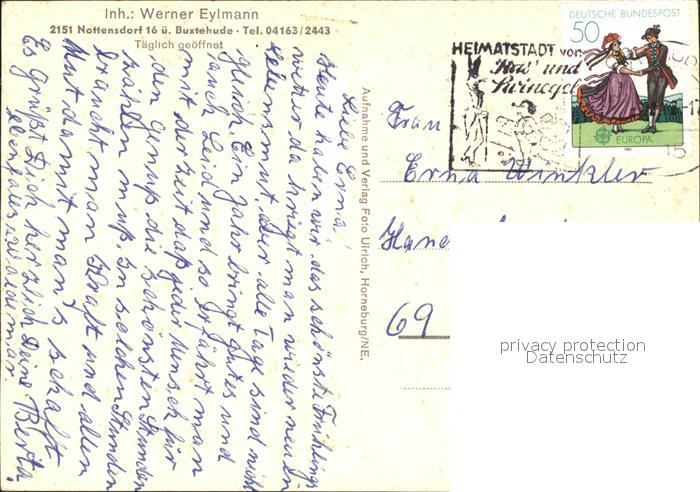 Inh.: Werner Eylmann
2151 Nottensdorf 16 ü. Buxtehude · Tel. 04163/2443
Täglich geöffnet
Liebe Erna!
Heute haben wir das schönste Frühlings
wetter da kriegt man wieder neuen
Lebensmut, aber alle Tage sind nicht
gleich. Ein Jahr bringt gutes und
auch Leid und so erfährt man
mit der Zeit daß jeder Mensch für
den Genuß die schönsten Stunden
zahlen muß. In solchen Stunden
braucht man Kraft und allen
Mut damit man's schafft
Es grüßt Dich herzlich Deine Berta.
ebenfalls
Aufnahme und Verlag Foto Ulrich, Horneburg/NE.
HEIMATSTADT von
'Has' und
Swinegel
DEUTSCHE BUNDESPOST
50
EUROPA
1981
15
Frau
Erna Winkler
69
privacy protection
Datenschutz